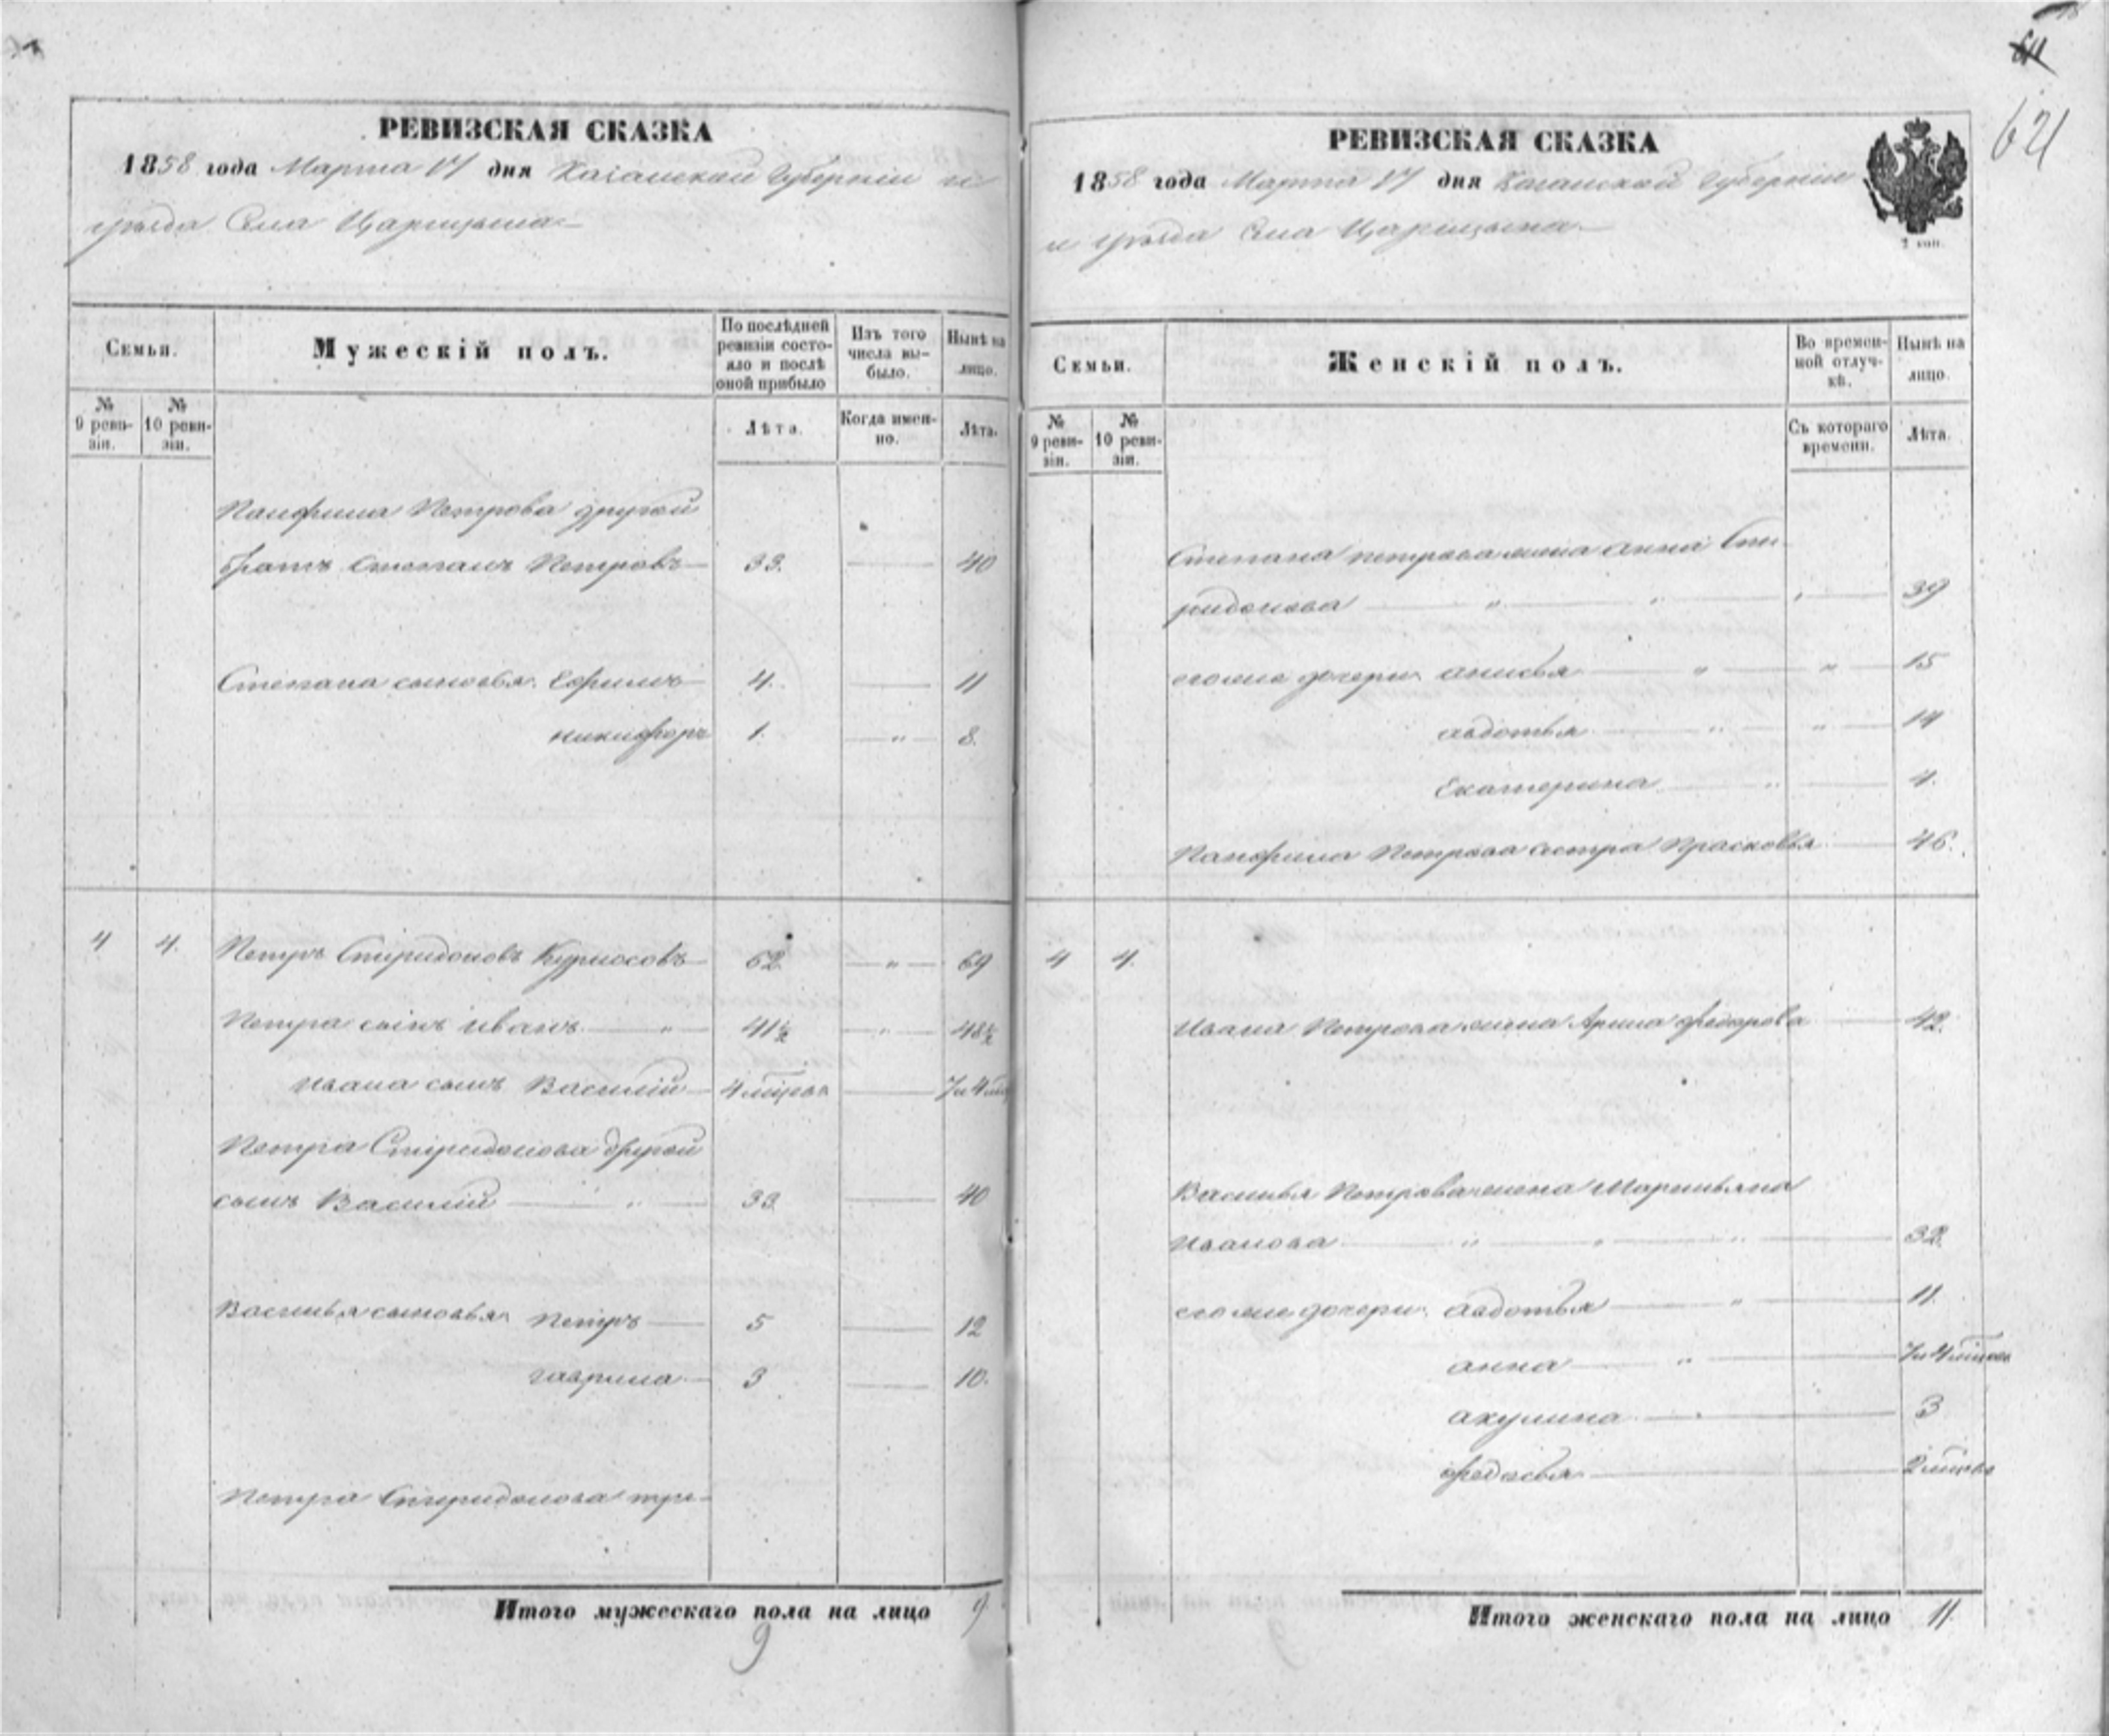 64
621
РЕВИЗСКАЯ СКАЗКА
1858 года Марта 17 дня Казанской Губерніи и
уѣзда Села Царицына
Семьи.
Мужескій полъ.
По послѣдней ревизіи состояло и послѣ оной прибыло
Изъ того числа выбыло.
Нынѣ на лицо.
№ 9 ревизіи.
№ 10 ревизіи.
Лѣта.
Когда именно.
Лѣта.
Панфила Петрова другой
братъ Степанъ Петровъ 33. 40
Степана сыновья. Ефимъ 4. 11
никифоръ 1. " 8.
4 4. Петръ Спиридоновъ Курносовъ 62. " 69
Петра сынъ Иванъ " 41½ " 48½
Ивана сынъ Василій 4 мѣцовъ 7 и 4 мѣц
Петра Спиридонова другой
сынъ Василій " 33. 40
Василья сыновья Петръ 5 12
гаврила 3 10.
Петра Спиридонова тре-
Итого мужескаго пола на лицо 9.
9
РЕВИЗСКАЯ СКАЗКА
1858 года Марта 17 дня Казанской Губерніи
и уѣзда Села Царицына
2 коп.
Семьи.
Женскій полъ.
Во временной отлучкѣ.
Нынѣ на лицо.
№ 9 ревизіи.
№ 10 ревизіи.
Съ котораго времени.
Лѣта.
Степана петрова жена анна Спи-
ридонова " " " 39
егоже дочери. анисья " " 15
авдотья " " 14
Екатерина " 4.
Панфила Петрова сестра Прасковья 46.
4 4.
Ивана Петрова жена Арина федорова 42.
Василья Петрова жена Маремьяна
Иванова " " " 32.
егоже дочери. авдотья " 11.
анна " 7 и 4 мѣцовъ
акулина 3
федосья 2 мѣцовъ
Итого женскаго пола на лицо 11.